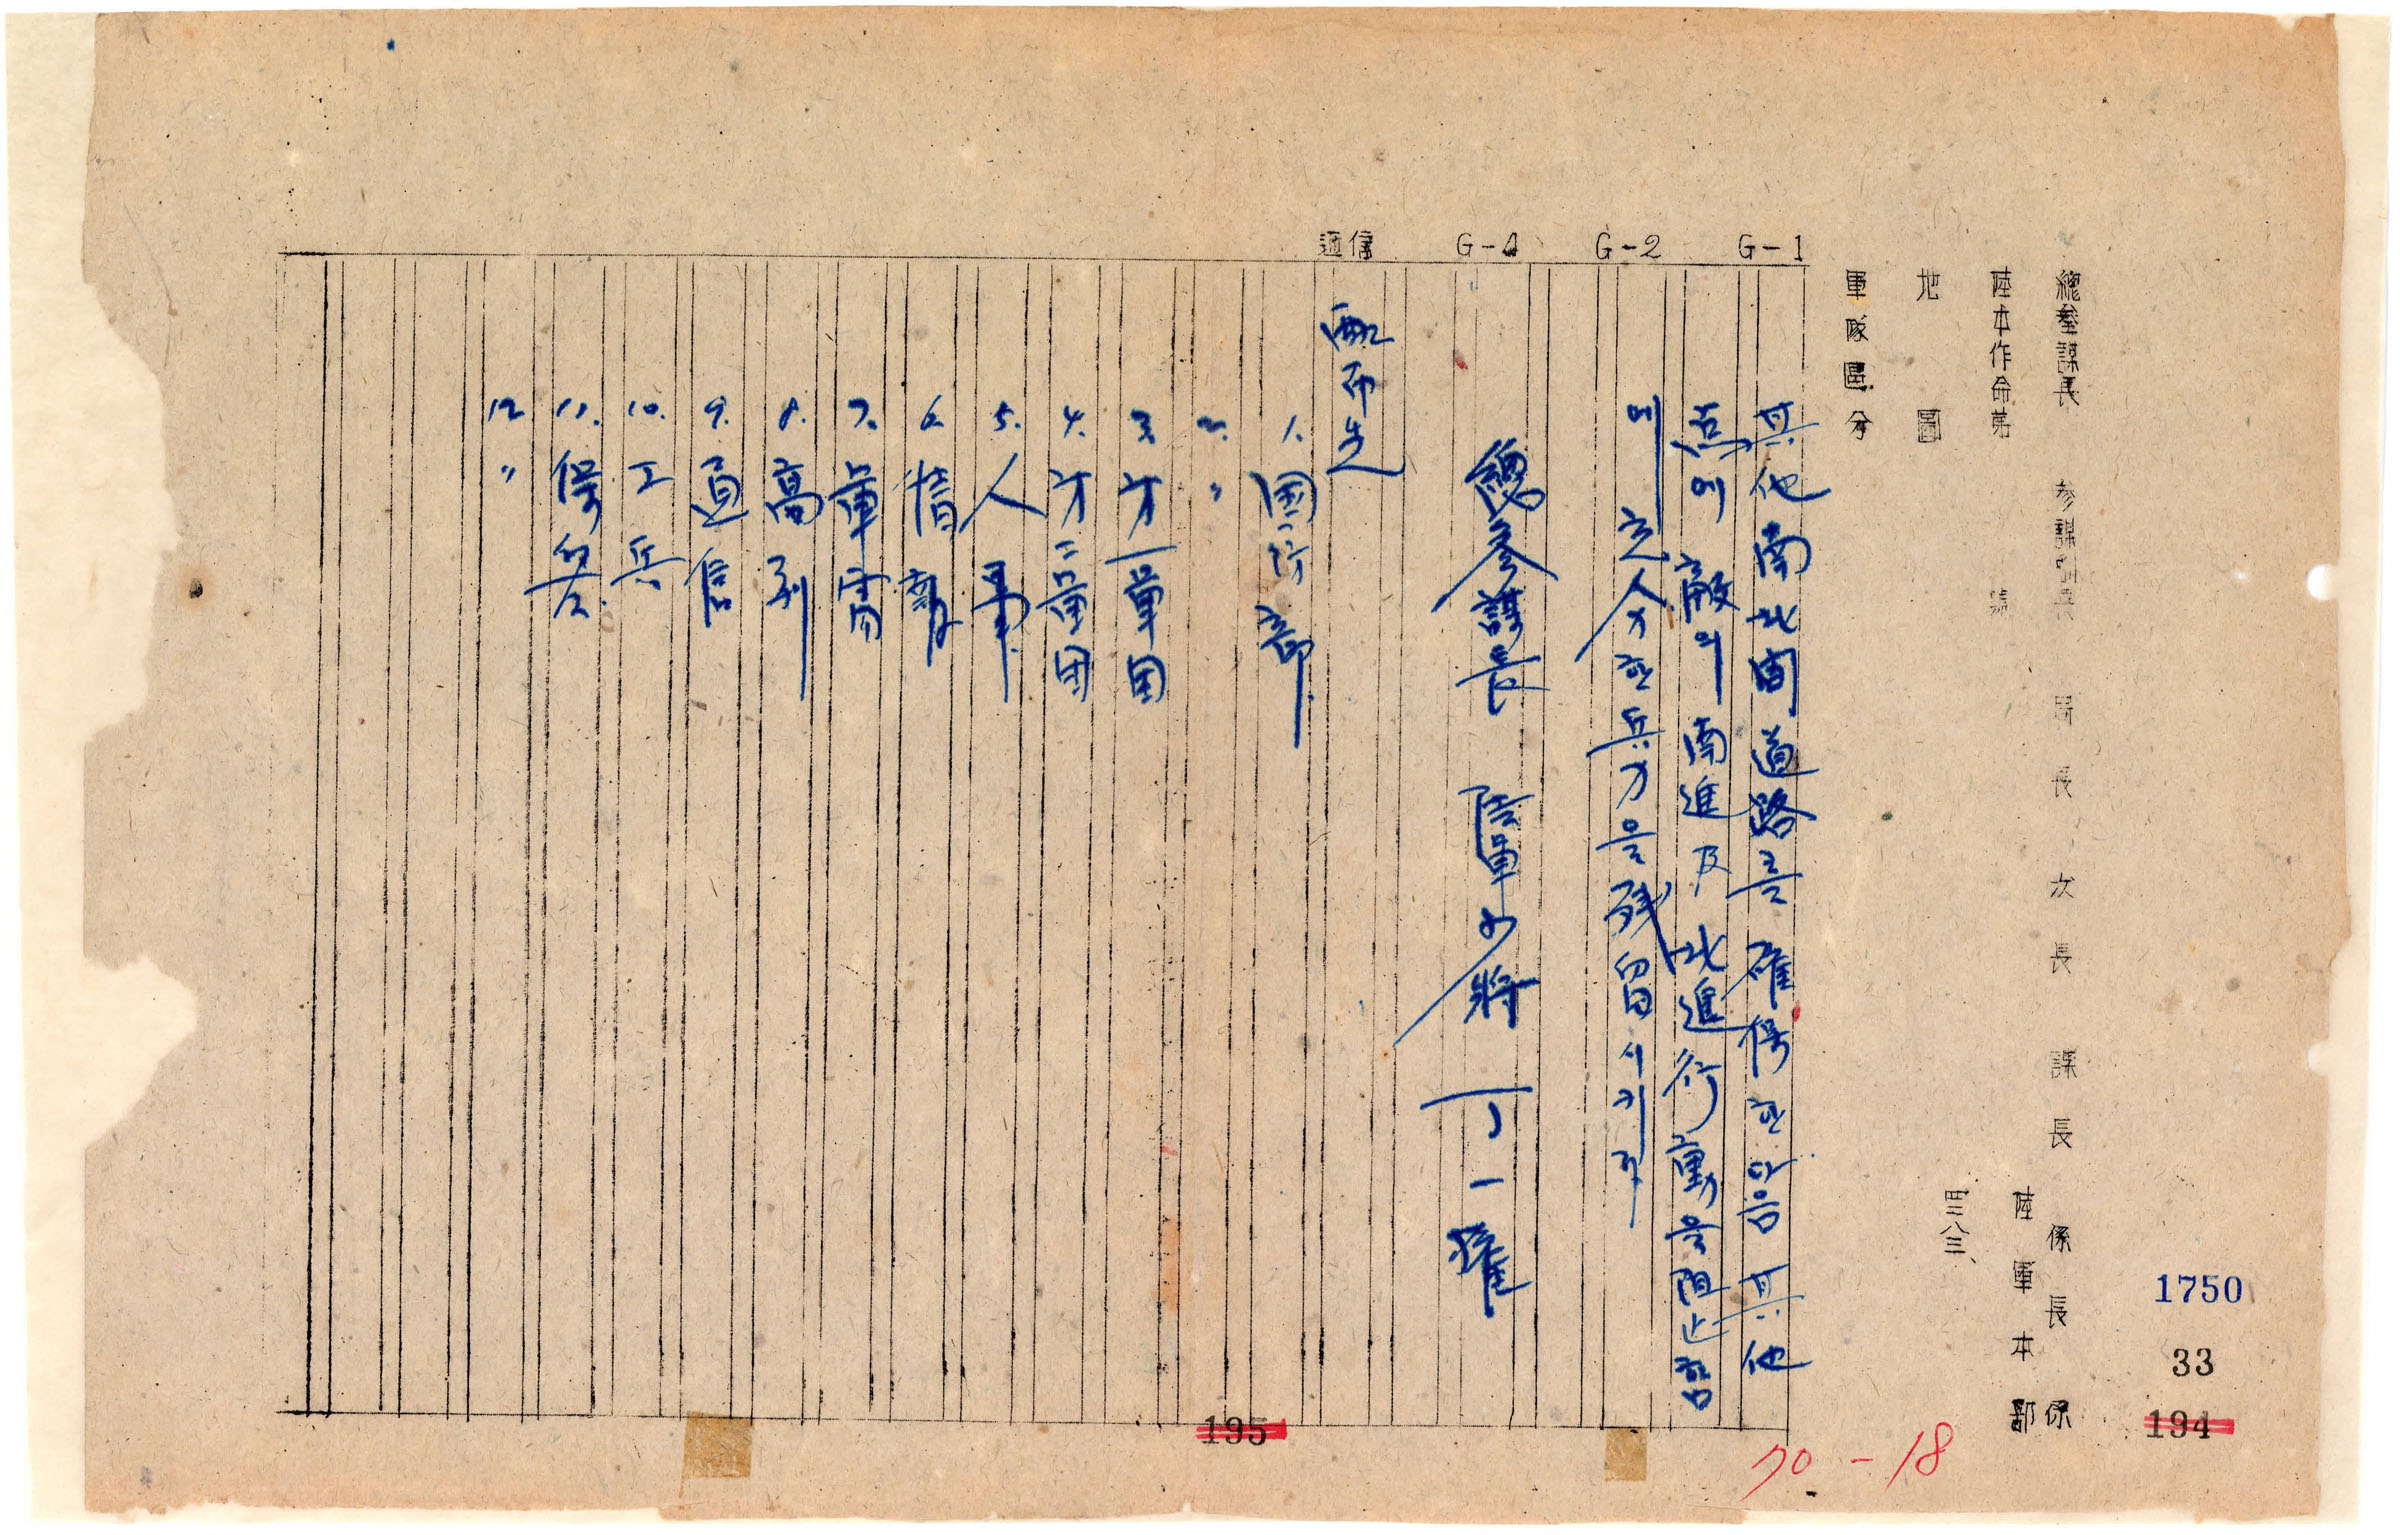 總參謀長 參謀副長 局長 次長 課長 係長 係
陸本作命第 號 陸軍本部
地圖 四二八三、
軍隊區分
G-1
G-2
G-4
通信
其他南北間道路를 確保한다음 其他
点에 敵의 南進及北進行動을 阻止함
에 充分한 兵力을 残留시키라
總參謀長 陸軍少將 丁一權
配布先
1. 國防部
2. 〃
3. 才一軍団
4. 才二軍団
5. 人事
6. 情報
7. 軍需
8. 高副
9. 通信
10. 工兵
11. 保管
12 〃
1750
33
194
195
70-18